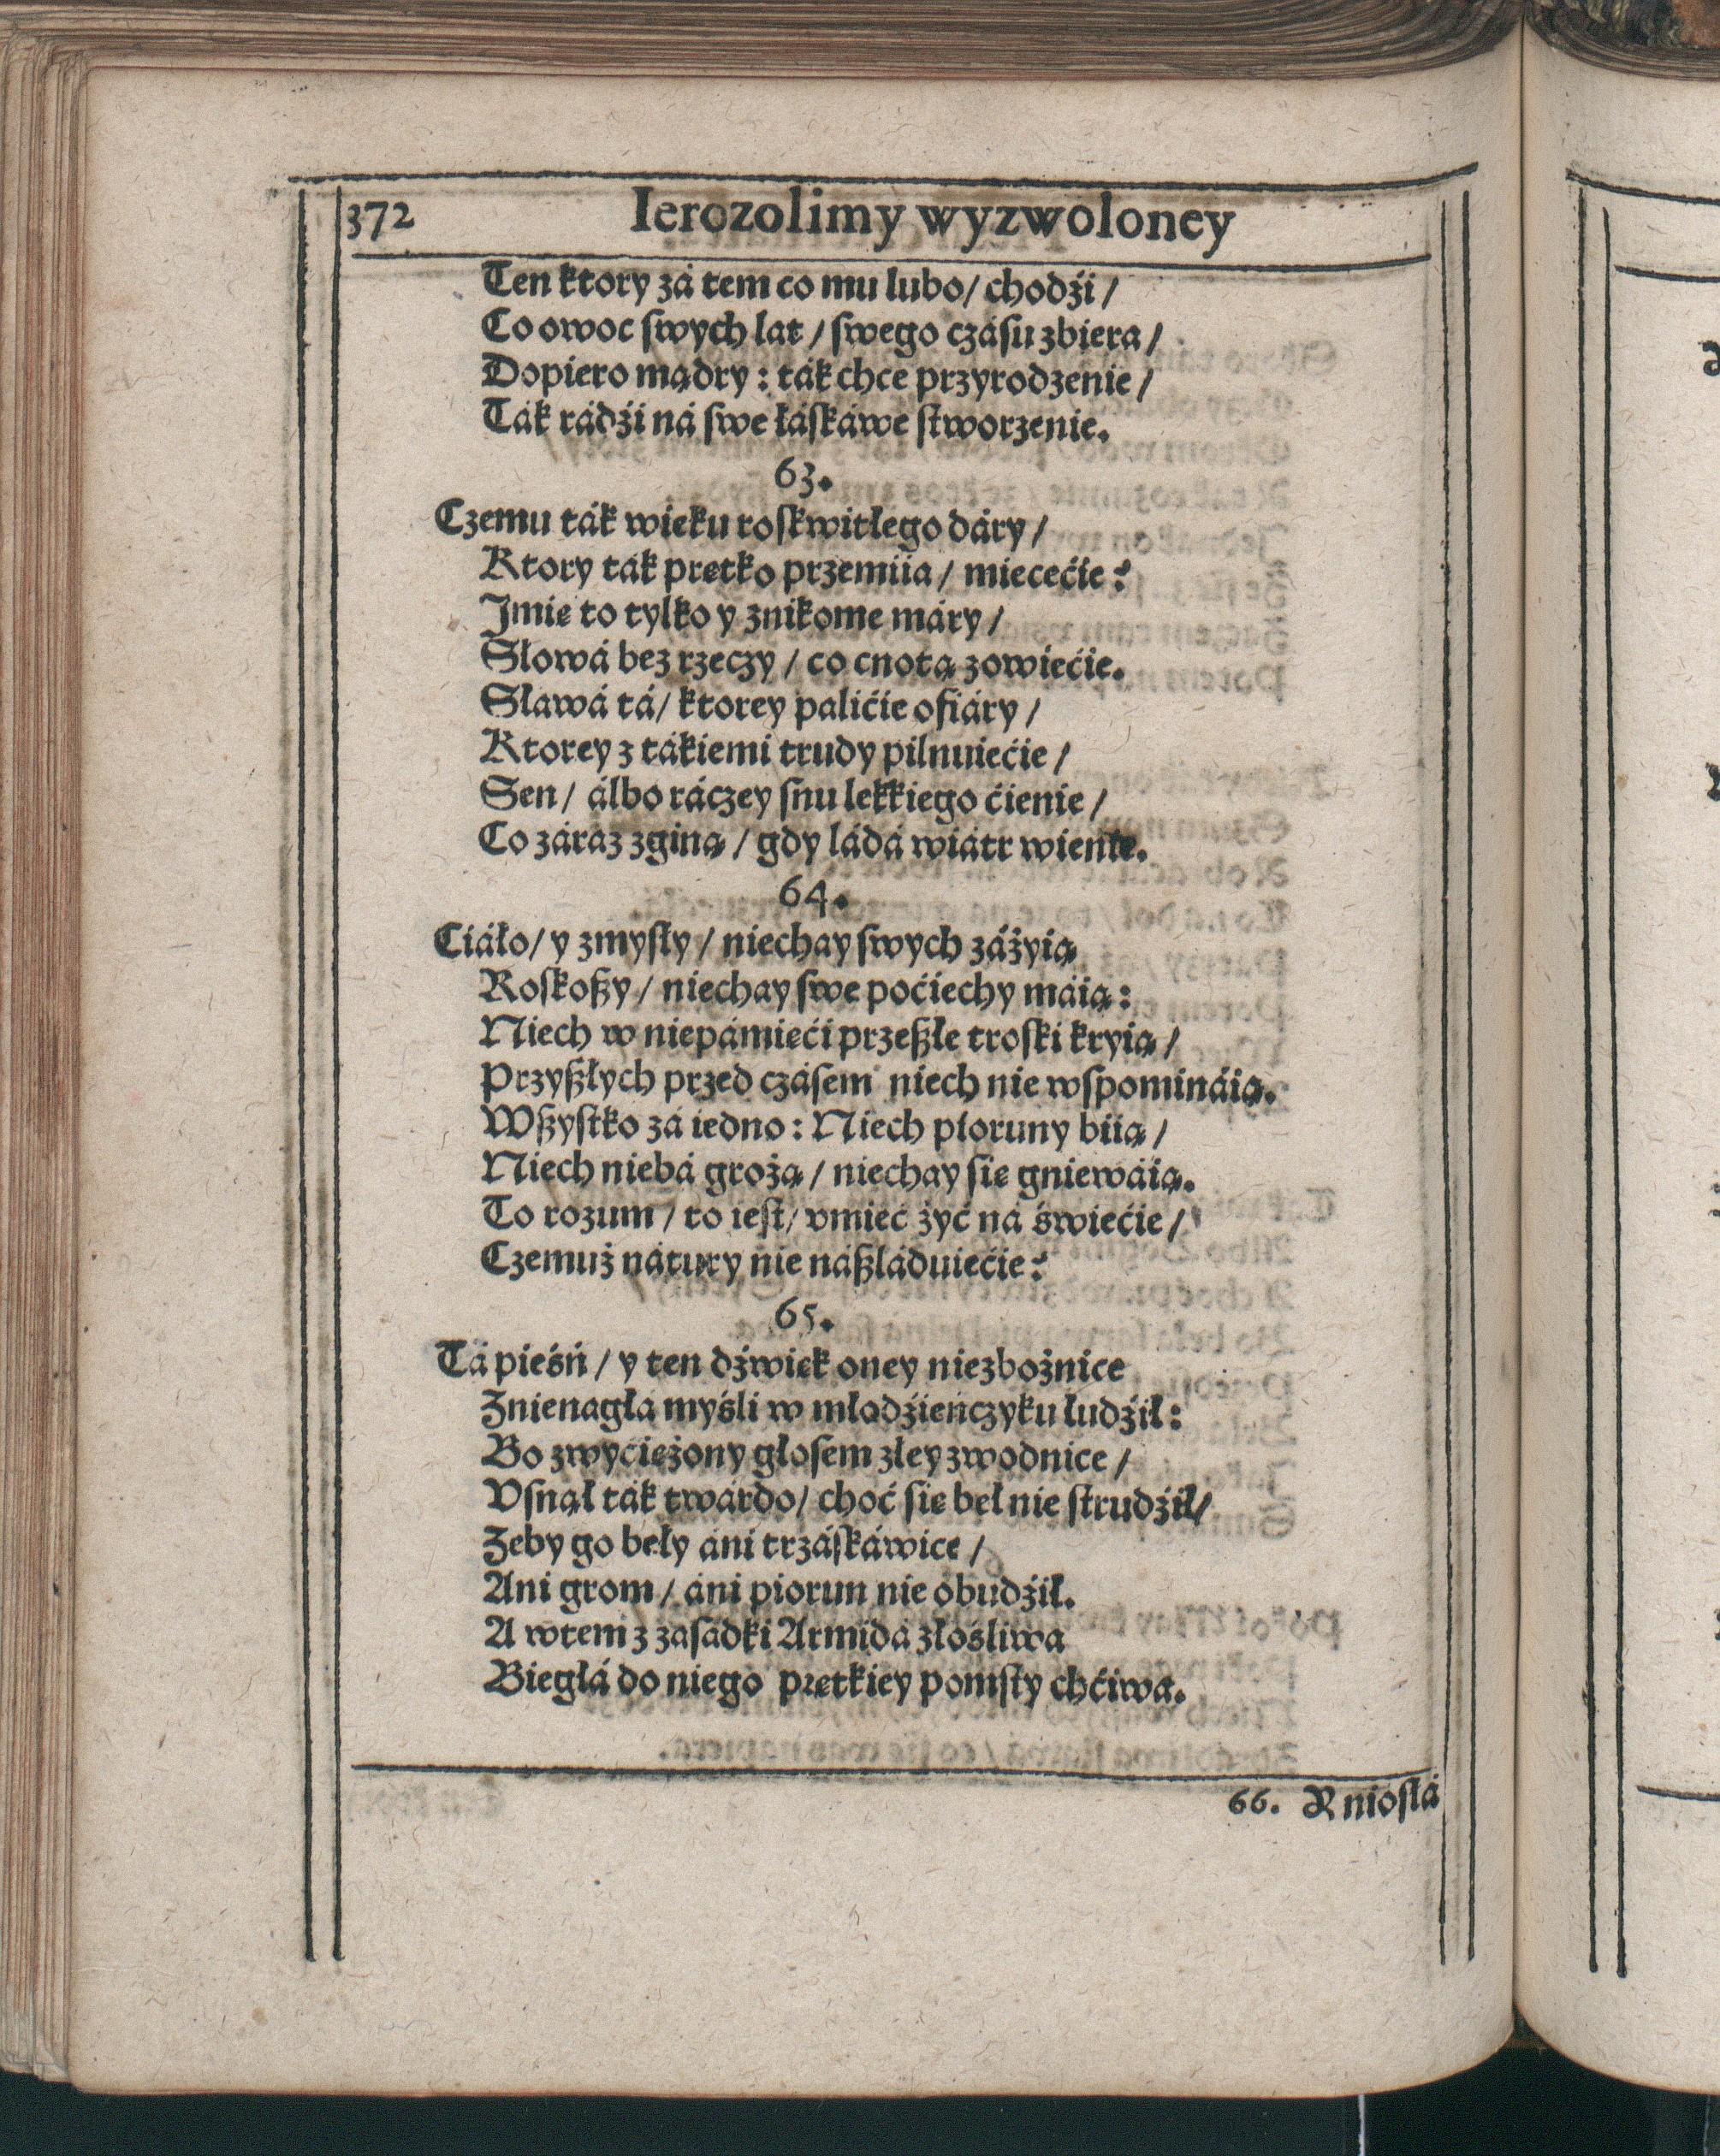 372 Ierozolimy wyzwoloney
Ten ktory zá tem co mu lubo/ chodźi /
Co owoc swych lat / swego czásu zbiera /
Dopiero mądry : ták chce przyrodzenie /
Ták rádźi ná swe łáskáwe stworzenie.
63.
Czemu ták wieku roskwitłego dáry /
Ktory ták prętko przemiia / miecećie?
Imię to tylko y znikome máry /
Słowá bez rzeczy / co cnotą zowiećie.
Sławá tá/ ktorey palićie ofiáry /
Ktorey z tákiemi trudy pilnuiećie /
Sen / álbo ráczey snu lekkiego ćienie /
Co záraz zginą / gdy ládá wiátr wienie.
64.
Ciáło/ y zmysły / niechay swych záżyią
Roskoßy / niechay swe poćiechy máią :
Niech w niepámięći przeßłe troski kryią /
Przyßłych przed czásem niech nie wspomináią.
Wßystko zá iedno : Niech pioruny biią /
Niech niebá grożą / niechay się gniewáią.
To rozum / to iest/ vmieć żyć ná świećie /
Czemuż nátury nie náßláduiećie?
65.
Tá pieśń / y ten dźwięk oney niezbożnice
Znienagłá myśli w młodźieńczyku łudźił :
Bo zwyciężony głosem złey zwodnice /
Vsnął ták twárdo/ choć się beł nie strudźił/
Zeby go beły áni trzáskáwice /
Ani grom / áni piorun nie obudźił.
A wtem z zasadki Armidá złośliwa
Biegłá do niego prętkiey pomsty chćiwa.
66. Rniosłá